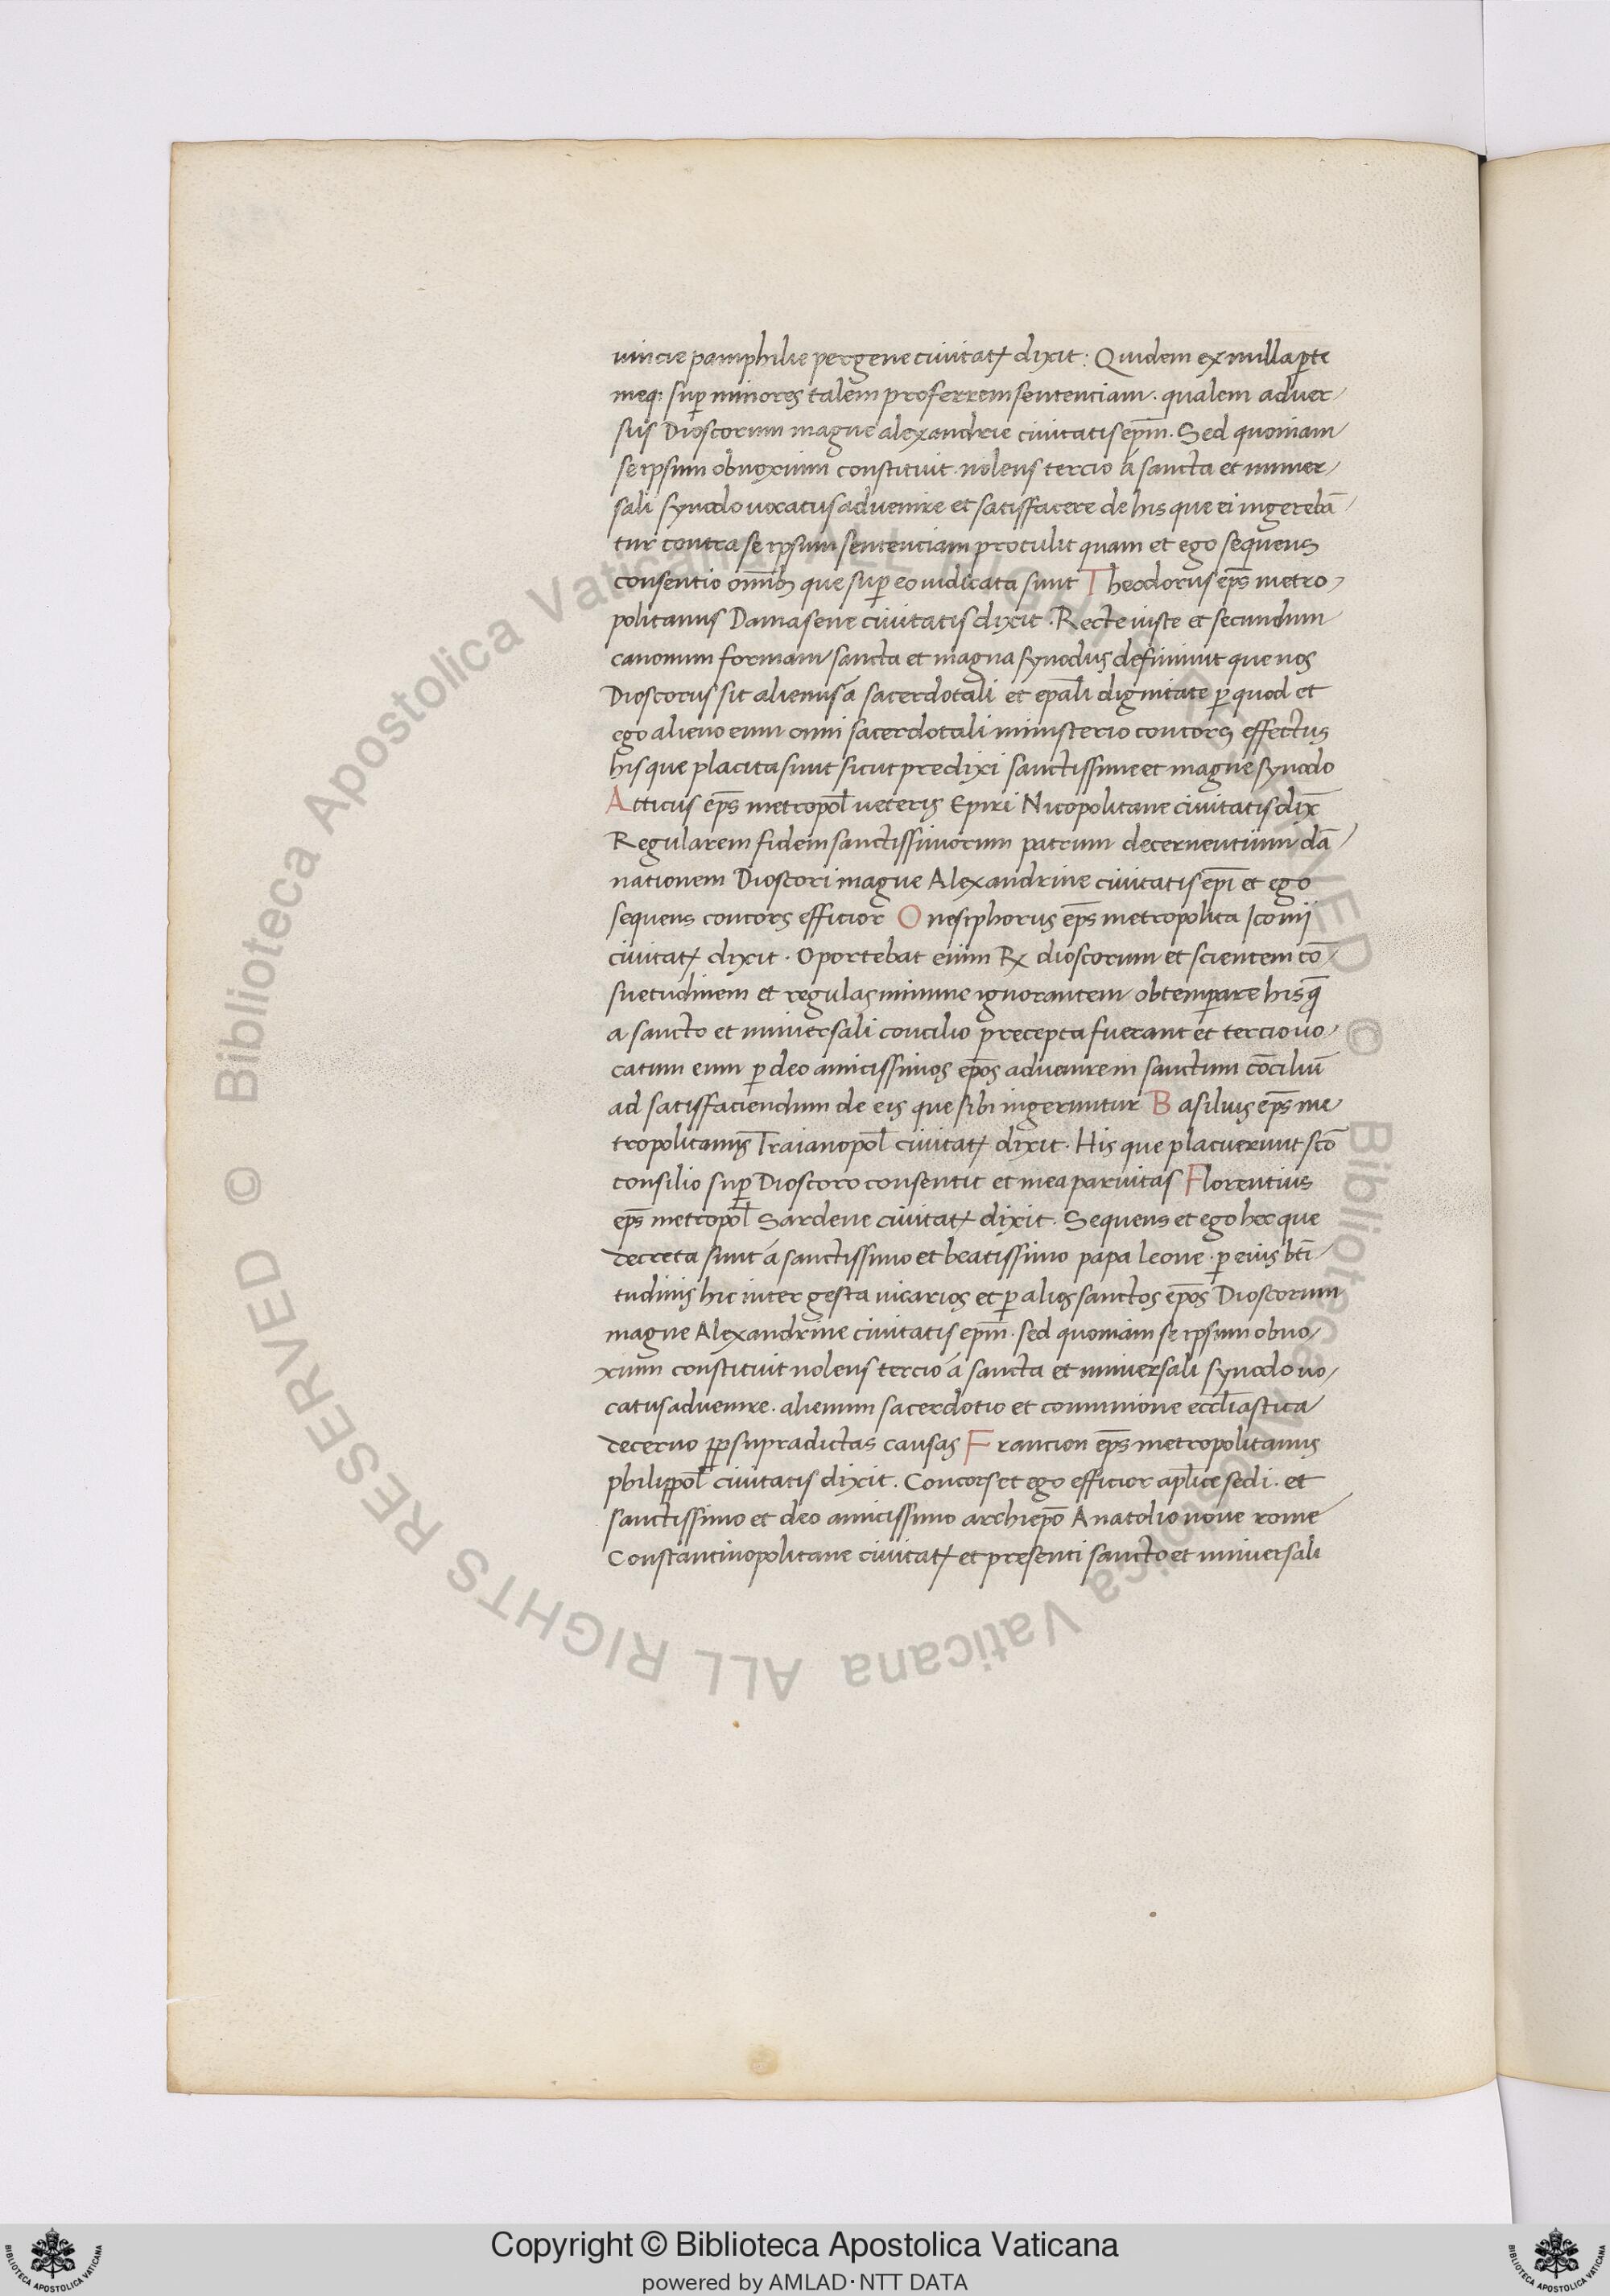 uincie pamphilie pergene ciuitatꝭ dixit: Quidem ex nulla ꝑte
neq; suꝑ minores talem proferrem sentenciam. qualem aduer
sus Dioscorum magne alexandrie ciuitatis ep̄m. Sed quoniam
se ipsum obnoxium constituit. nolens tercio á sancta et uniuer
sali synodo uocatus aduenire et satisfacere de his que ei ingerebā
tur contra se ipsum sentenciam protulit quam et ego sequens
consentio om̄ib; que suꝑ eo iudicata sunt Theodorus ep̄s metro
politanus Damasene ciuitatis dixit. Recte iuste et secundum
canonum formam sancta et magna synodus definiuit que nos
Dioscorus sit alienus á sacerdotali et ep̄ali dignitate ꝑ quod et
ego alieno eum omni sacerdotali ministerio concors effectus
his que placita sunt sicut predixi sanctissime et magne synodo
Atticus ep̄s metropol̄ ueteris Epiri Nicopolitane ciuitatis dix̄
Regularem fidem sanctissimorum patrum decernentium dā
nationem Dioscori magne Alexandrine ciuitatis ep̄i et ego
sequens concors efficior Onesiphorus ep̄s metropolita Iconij
ciuitatꝭ dixit. Oportebat enim Rx dioscorum et scientem cō
suetudinem et regulas minime ignorantem obtemꝑare his q̄
a sancto et uniuersali concilio precepta fuerant et tercio uo
catum eum ꝑ deo amicissimos ep̄os aduenire in sanctum cōciliū
ad satisfaciendum de eis que sibi ingeruntur Basilius ep̄s me
tropolitanus Traianopol̄ ciuitatꝭ dixit. His que placuerunt sc̄o
consilio suꝑ Dioscoro consentit et mea paruitas Florentius
ep̄s metropol̄ Sardene ciuitatꝭ dixit. Sequens et ego hec que
decreta sunt á sanctissimo et beatissimo papa leone. ꝑ eius bt̄i
tudinis hic inter gesta uicarios et ꝑ alios sanctos ep̄os Dioscorum
magne Alexandrine ciuitatis ep̄m. sed quoniam se ipsum obno
xium constituit nolens tercio á sancta et uniuersali synodo uo
catus aduenire. alienum sacerdotio et comunione eccl̄iastica
decerno ꝓp supradictas causas Francion ep̄s metropolitanus
philippol̄ ciuitatis dixit. Concors et ego efficior apl̄ice sedi. et
sanctissimo et deo amicissimo archiep̄o Anatolio noue rome
Constantinopolitane ciuitatꝭ et presenti sancto et uniuersali
Copyright © Biblioteca Apostolica Vaticana
powered by AMLAD·NTT DATA